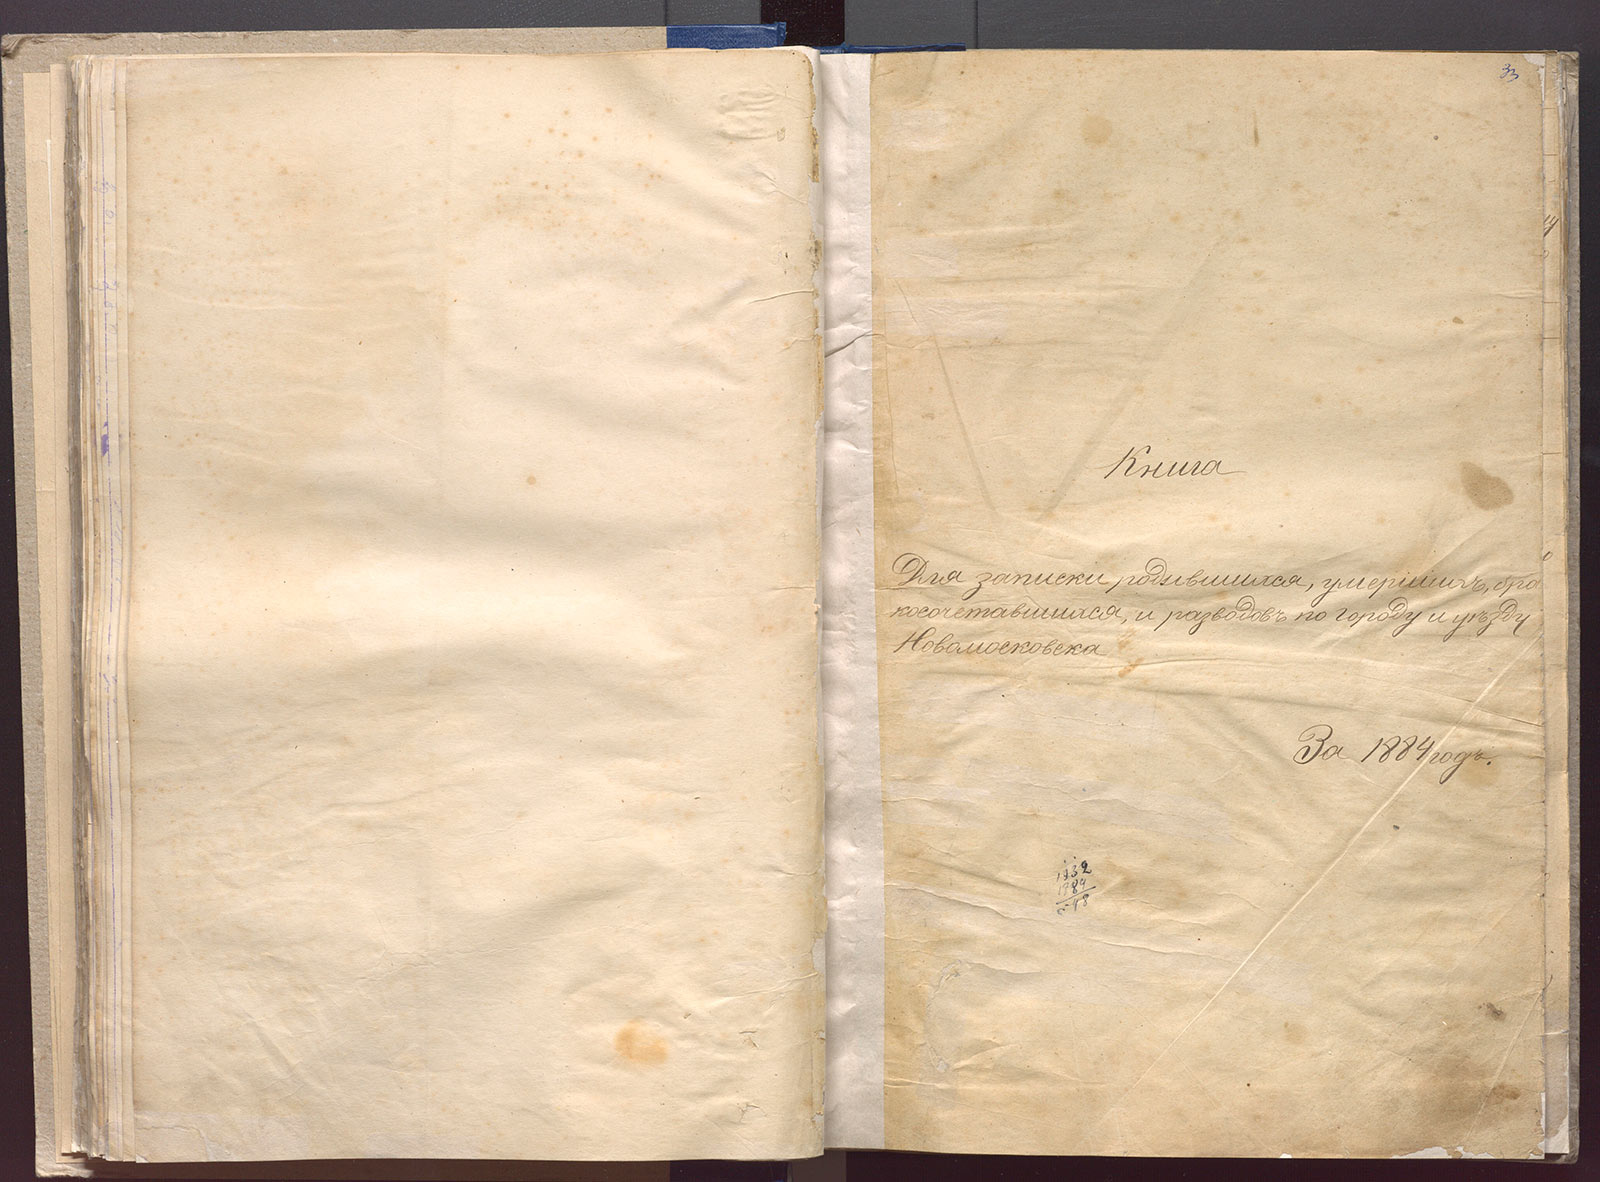 33
Книга
Для записки родившихся, умершихъ, бра
косочетавшихся, и разводовъ по городу и уѣзду
Новомосковска
За 1884 годъ.
1932
1884
48